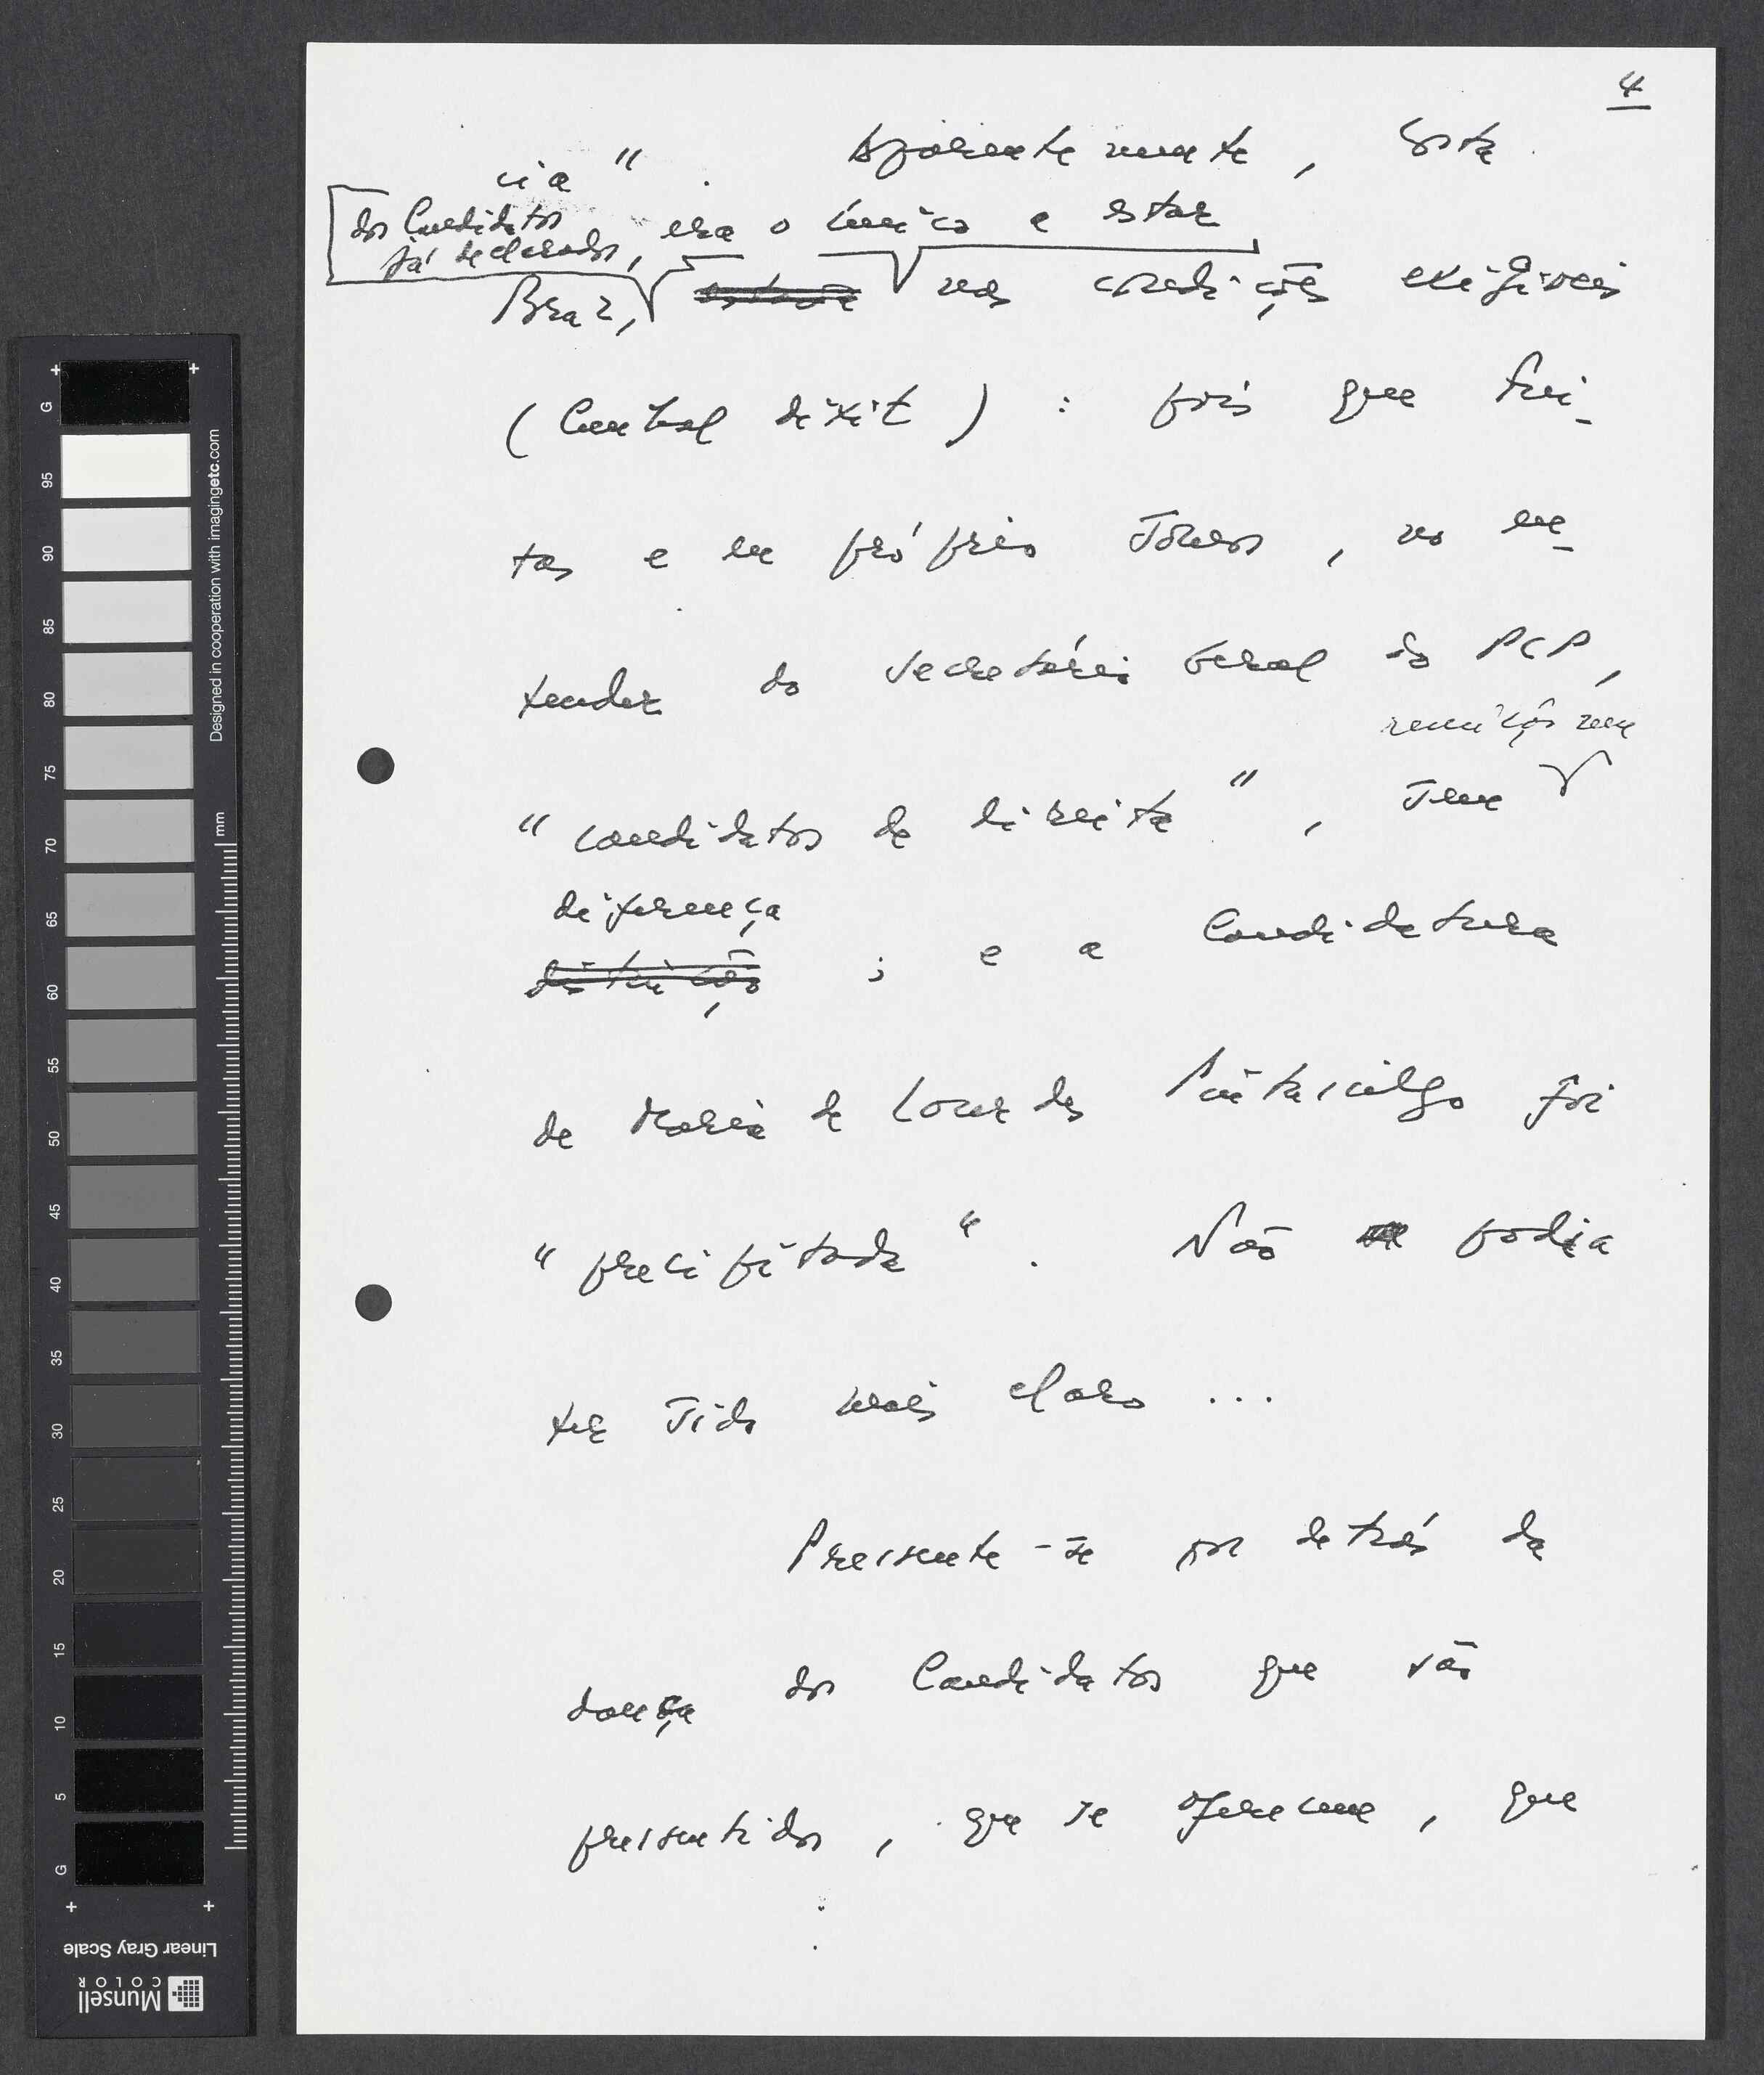 4
cia". Aparentemente, Costa
dos Candidatos
já declarados, era o único a estar
Braz, estava nas condições exigíveis
(Cunhal dixit): pois que Frei-
tas e eu próprio somos, no en-
tender do Secretário Geral do PCP,
remissão nem
"candidatos de direita", sem
diferença
distinção; e a Candidatura
de Maria de Lourdes Pintasilgo foi
"precipitada". Não podia
ter sido mais claro...
Pressente-se por detrás da
dança dos Candidatos que são
pressentidos, que se oferecem, que
Designed in cooperation with imagingetc.com
mm
G
95
90
85
80
75
70
65
60
55
50
45
40
35
30
25
20
15
10
5
G
Linear Gray Scale
Munsell
COLOR